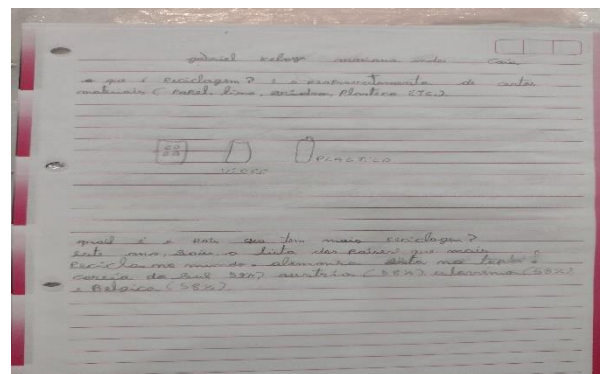 que é reciclagem? é o reaproveitamento de certos
materiais (Papel, lixo, vidros, Plastico ETC.)
VIDRO
PLASTICO
qual é o país que tem mais reciclagem?
este ano, saiu a lista dos Países que mais
recicla no mundo. alemanha esta no topo!
coreia do Sul 59%) austria (58%) eslovenia (58%)
e Belgica (58%).